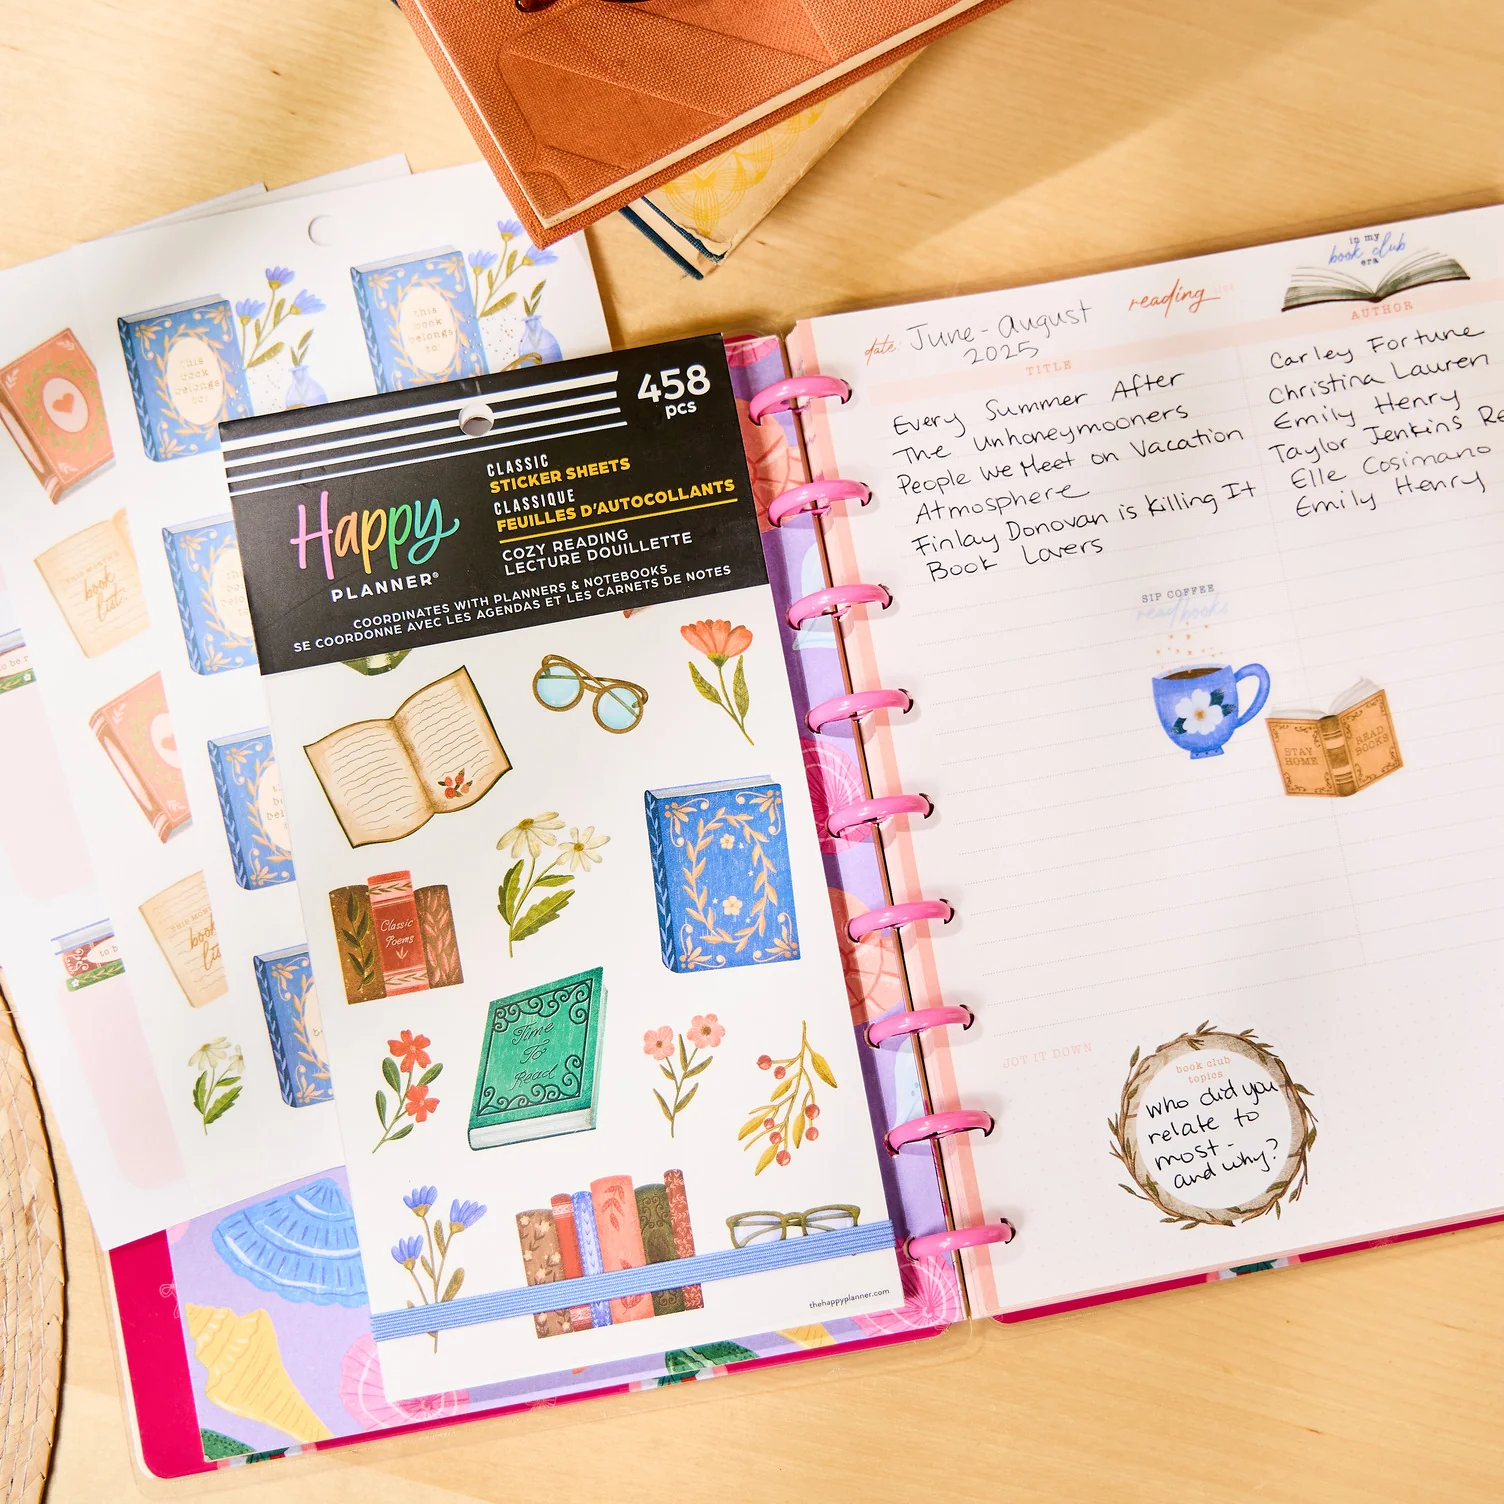 this
book
belongs
to:
this
book
belongs
to:
book
list
to be r
458
pcs
CLASSIC
STICKER SHEETS
CLASSIQUE
FEUILLES D'AUTOCOLLANTS
COZY READING
LECTURE DOUILLETTE
Happy
PLANNER®
COORDINATES WITH PLANNERS & NOTEBOOKS
SE COORDONNE AVEC LES AGENDAS ET LES CARNETS DE NOTES
Classic
Poems
Time
To
Read
THIS MON
book
li
to b
thehappyplanner.com
date: June - August
2025
reading
in my
book club
era
TITLE
AUTHOR
Every Summer After
Carley Fortune
The Unhoneymooners
Christina Lauren
People We Meet on Vacation
Emily Henry
Atmosphere
Taylor Jenkins Re
Finlay Donovan is Killing It
Elle Cosimano
Book Lovers
Emily Henry
SIP COFFEE
read books
STAY
HOME
READ
BOOKS
JOT IT DOWN
book club
topics
who did you
relate to
most -
and why?